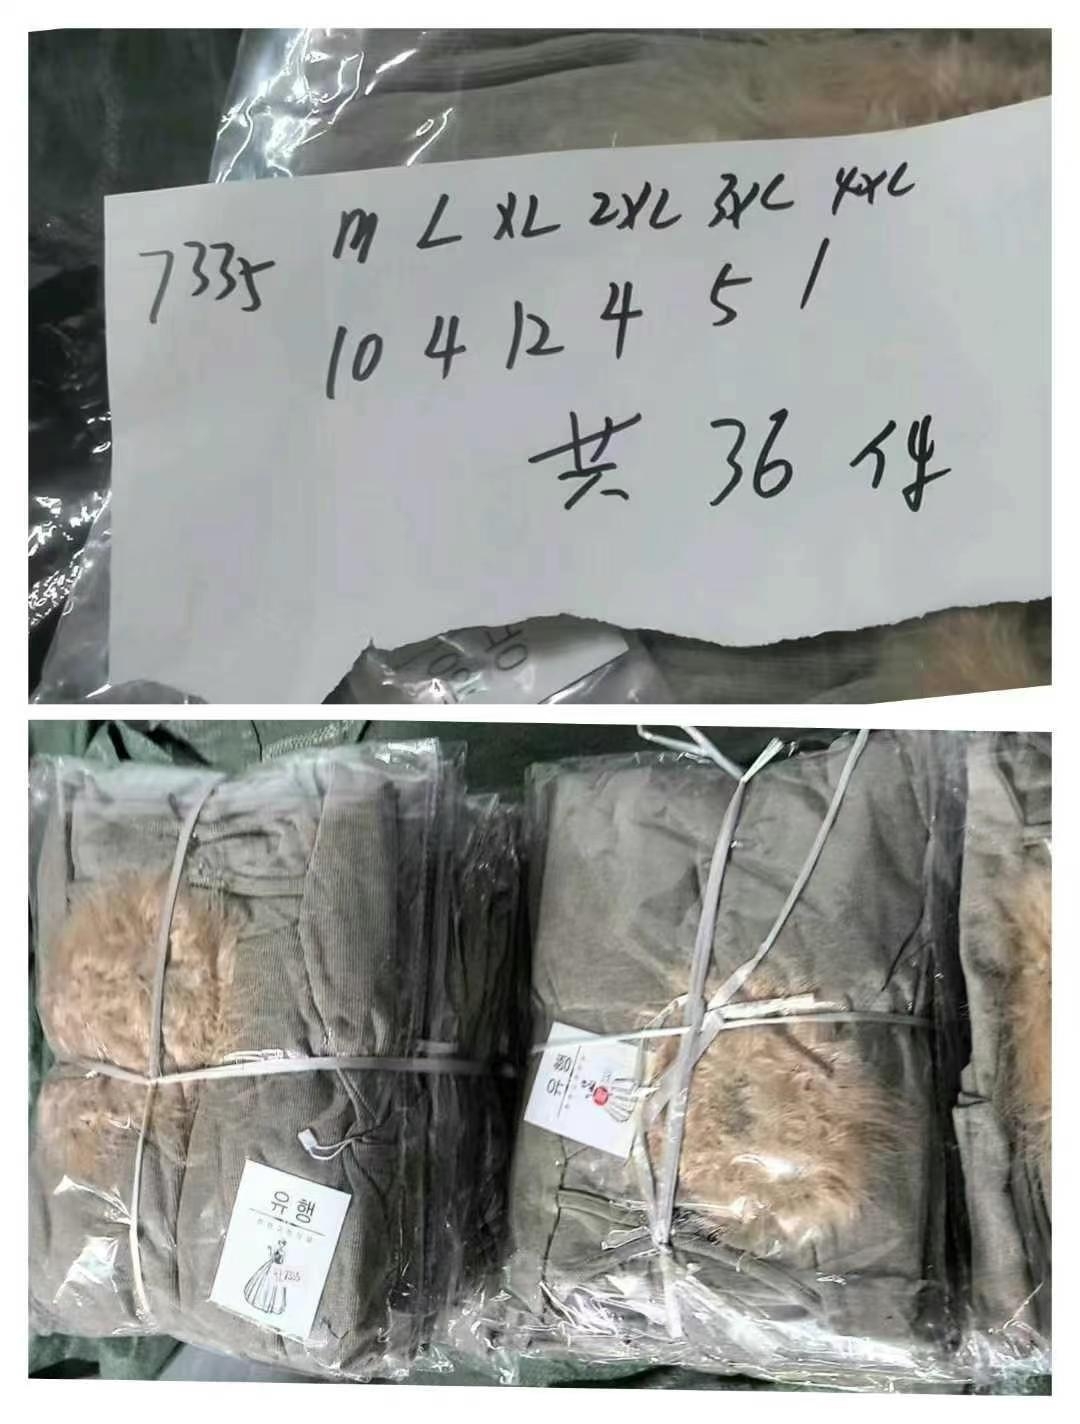 7335 M L XL 2XL 3XL 4XL
10 4 12 4 5 1
共 36 件
유행
7335
유행